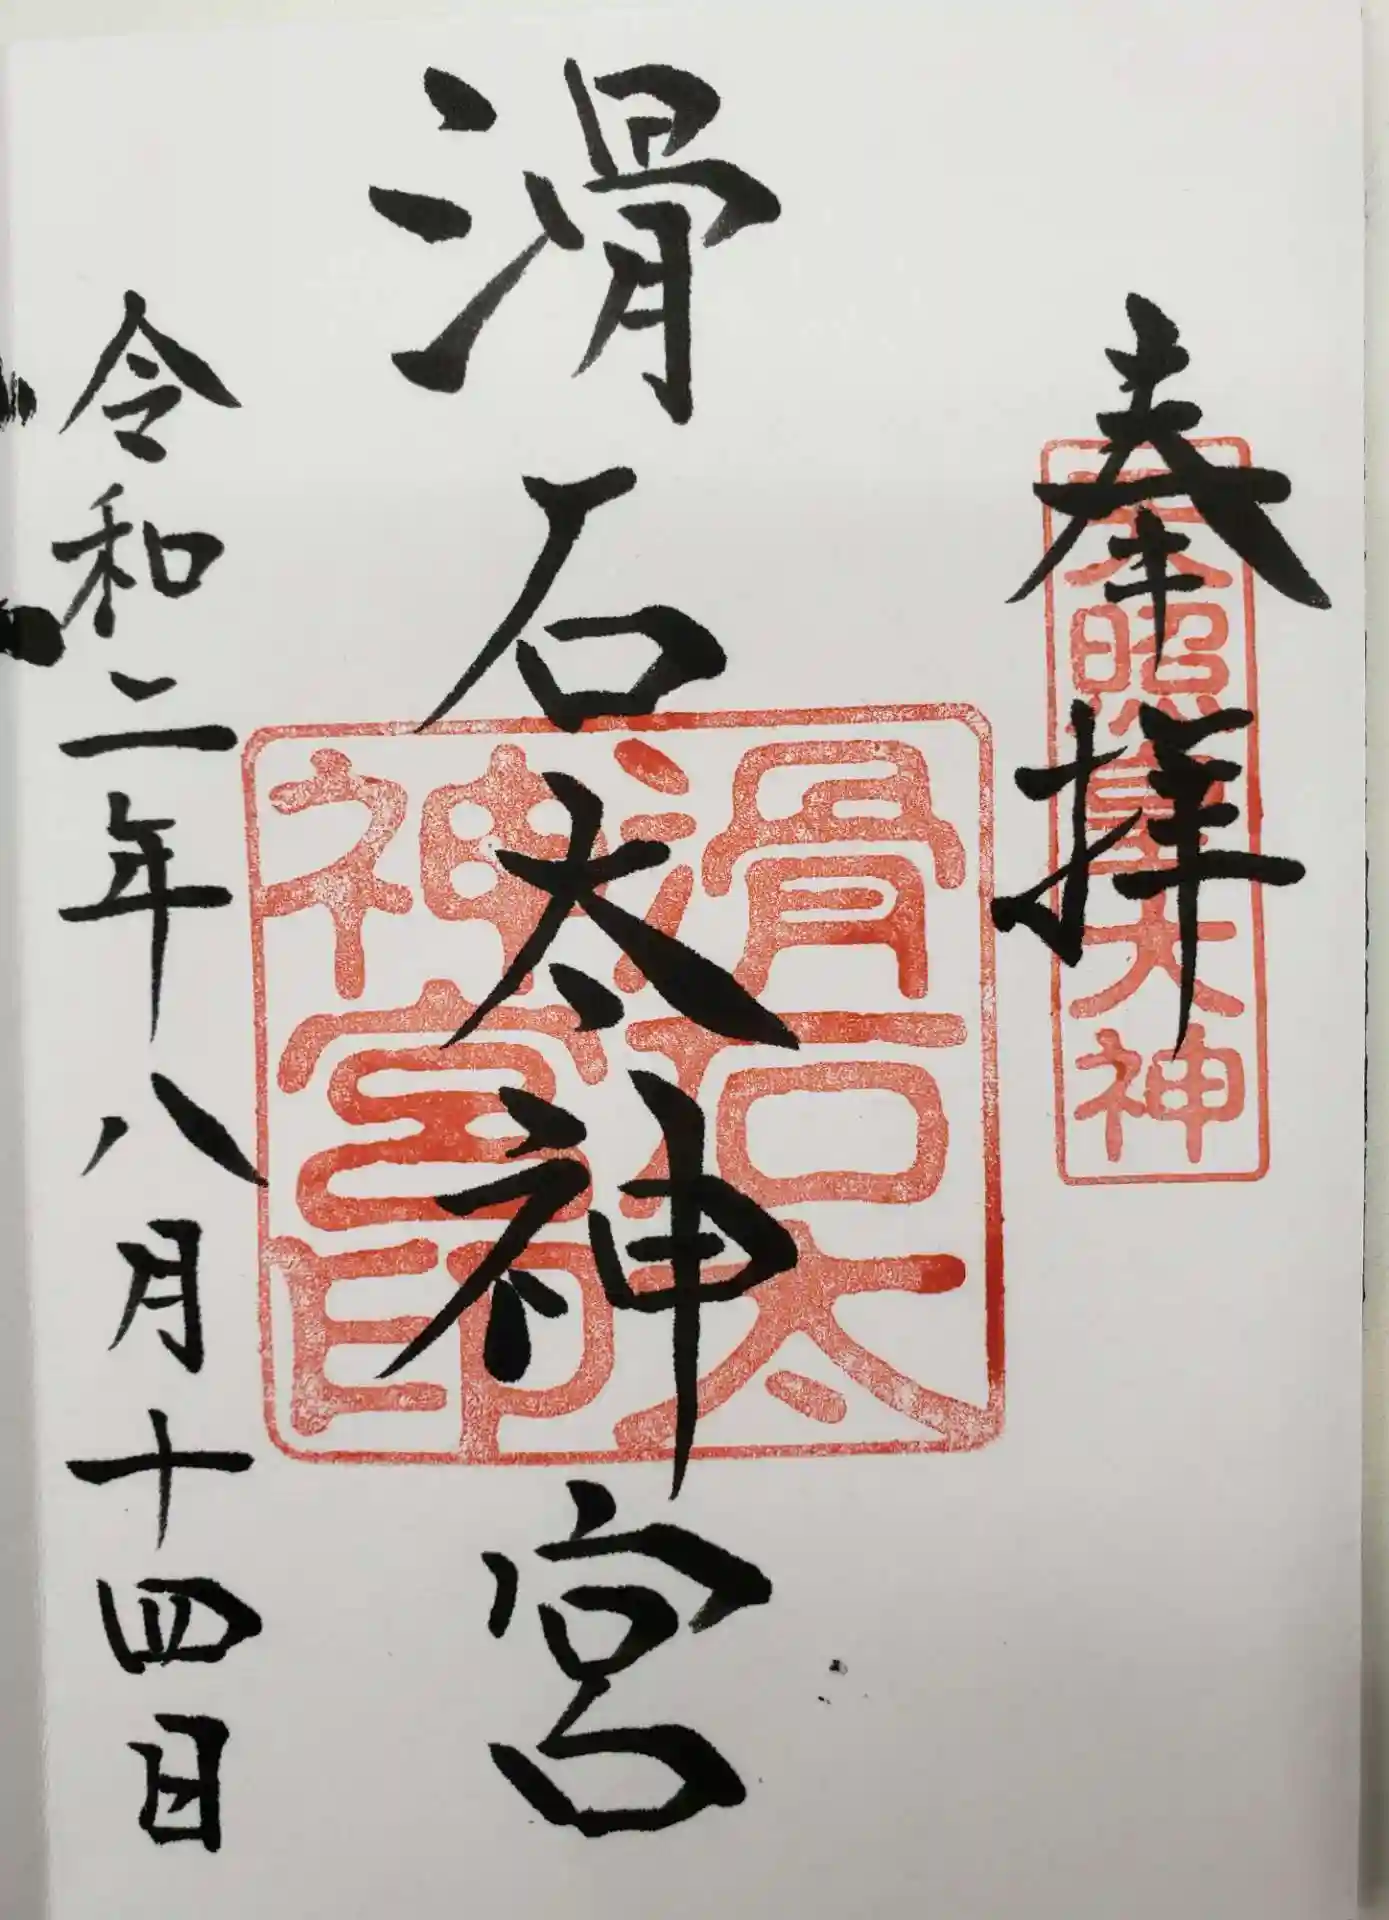 奉拝
天照皇大神
滑石太神宮
滑石太
神宮印
令和二年八月十四日